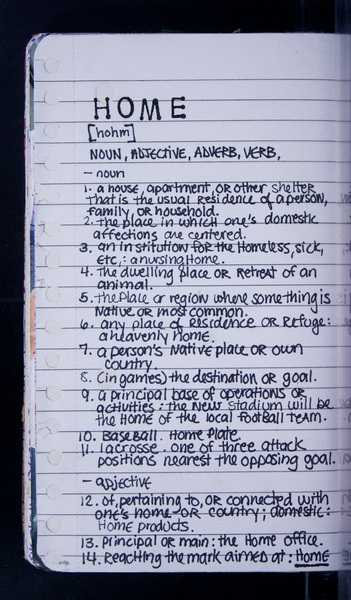 HOME
[hohm]
NOUN, ADJECTIVE, ADVERB, VERB,
- noun
1. a house, apartment, OR other shelter
that is the usual residence of a person,
family, OR household.
2. the place in which one's domestic
affections are centered.
3. an institution for the Homeless, sick,
etc.: a nursing Home.
4. the dwelling place OR Retreat of an
animal.
5. the Place or region where something is
Native or most common.
6. any place of Residence OR Refuge:
a heavenly Home.
7. a person's Native place or own
country.
8. (in games) the destination or goal.
9. a principal base of operations or
activities: the New Stadium will be
the Home of the local Football team.
10. Baseball. Home Plate.
11. lacrosse. one of three attack
positions nearest the opposing goal.
- adjective
12. of, pertaining to, or connected with
one's home OR country; domestic:
Home products.
13. Principal or main: the Home office.
14. Reaching the mark aimed at: Home